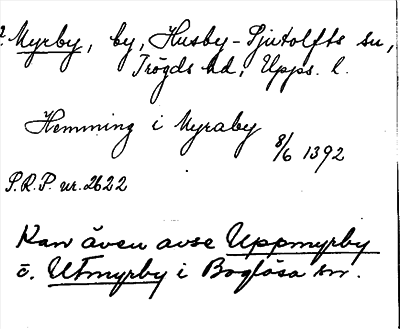 ?. Myrby, by, Husby-Sjutolfts sn,
Trögds hd, Upps. l.
Hemming i Myraby
8/6 1392
S.R.P. nr. 2622
Kan även avse Uppmyrby
o. Utmyrby i Boglösa sn.